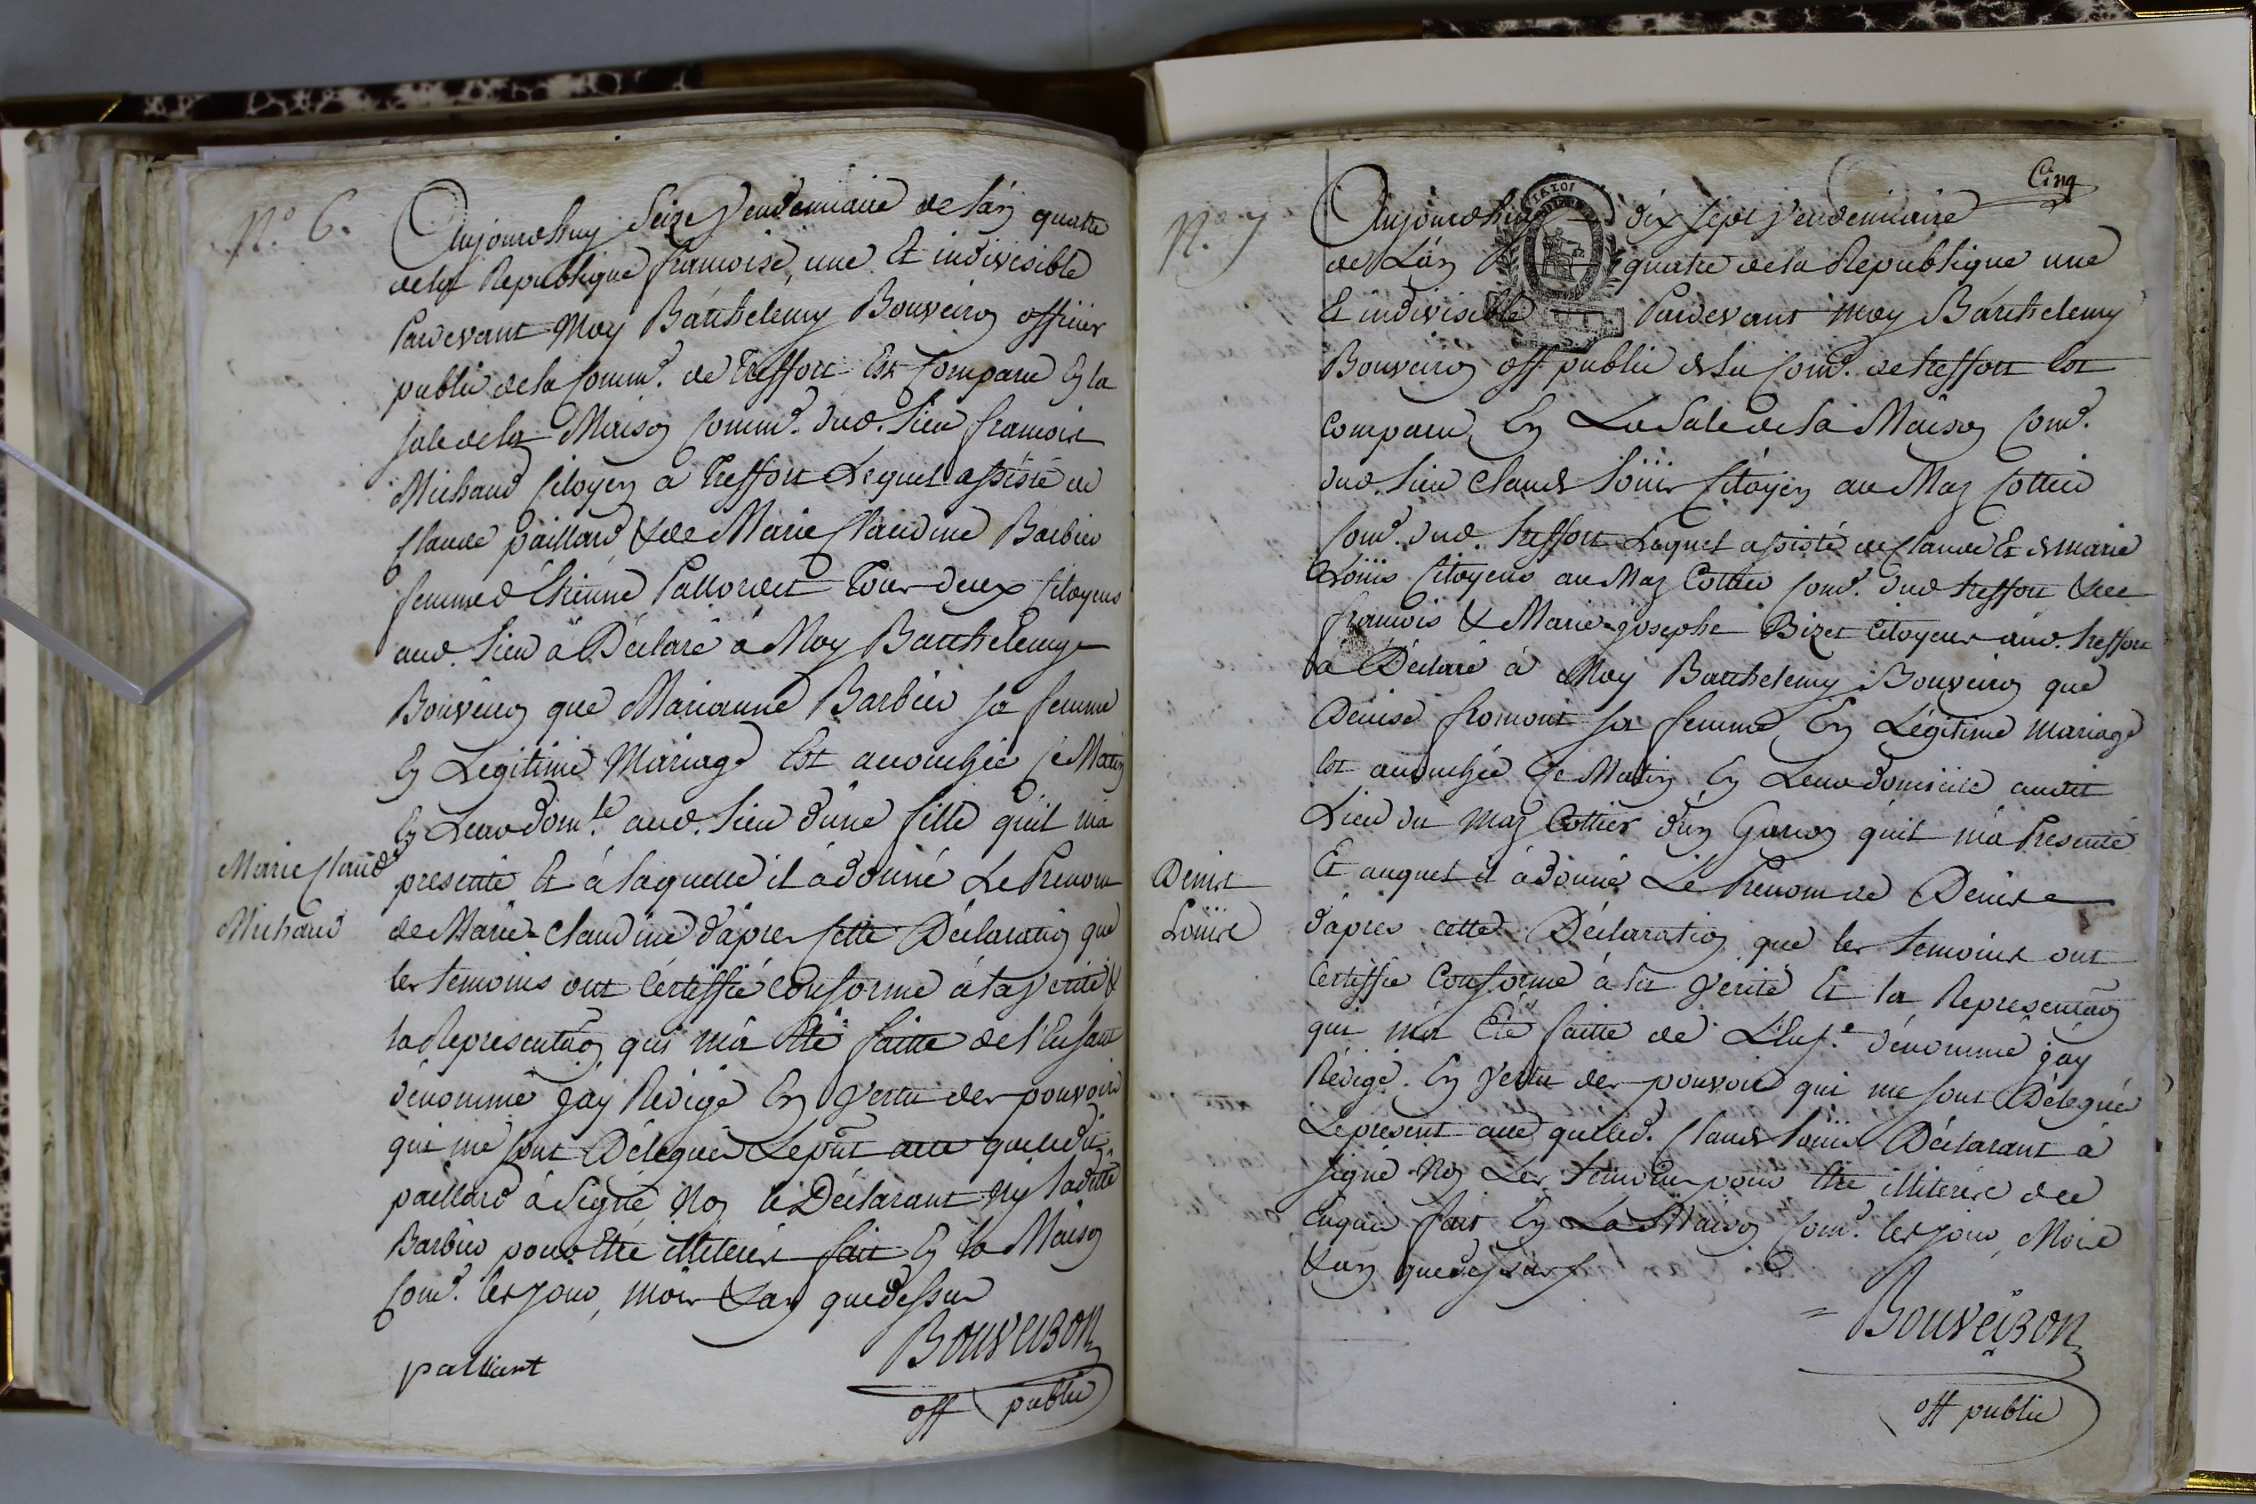 N.° 6.
Aujourdhuy Seize Vendemiaire de l'an quatre
de la Republique francoise, une Et indivisible
Pardevant Moy Barthelemy Bouveiron officier
public de la Comm.e de Treffort Est Comparu En la
sale de la Maison Comm.e dud. Lieu francois
Michaud Citoyen a Treffort Lequel assisté de
Claude paillard & de Marie Claudine Barbier
femme d'Etienne Pallordet Tous deux Citoyens
aud. Lieu a Déclaré à Moy Barthelemy
Bouveiron que Marianne Barbier sa femme
En Legitime Mariage Est accouchée Ce Matin
En Leur dom.le aud. Lieu d'une fille qu'il m'a
presenté Et à laquelle il a donné Le Prenom
de Marie-Claudine d'apres Cette Déclaration que
les temoins ont Certiffié Conforme à la Verité &
la Representaõn qui m'a Eté faitte de l'Enfant
dénommé J'ay Redigé En Vertu des pouvoirs
qui me sont Délegués Le pñt acte que ledit
paillard à Signé Non le Déclarant Ny laditte
Barbier pour Etre illiterés fait En la Maison
Com.e les jour, mois & an que dessus
Marie Claud.e
Michaud
paillart
Bouveiron
off public
Cinq
N.° 7
Aujourdhuy dix sept Vendemiaire
de L'an quatre de la Republique une
Et indivisible Pardevant Moy Barthelemy
Bouveiron off public de La Com.e de treffort Est
Comparu En La Sale de la Maison Com.e
dud. Lieu Claude Loüis Citoyen au Maz Cottier
Com.e dud. treffort Lequel assisté de Claude Et de Marie
Loüis Citoyens au Maz Cottier Com.e dud treffort & de
francois & Marie-josephe Bizet Citoyens aud. treffort
a Déclaré à Moy Barthelemy Bouveiron que
Denise fromont sa femme En Légitime Mariage
Est accouchée Ce Matin En Leur domicile audit
Lieu du Maz Cottier d'un Garcon qu'il m'a Presenté
Et auquel il à donné Le Prenom de Denis
d'apres cette Déclaration que les temoins ont
Certiffie Conforme à la Verité Et la Representaõn
qui m'a Eté faitte de L'Enf.t dénommé j'ay
Rédigé En Vertu des pouvoirs qui me sont Délegués
Le present acte que led. Claude Louis Déclarant à
signé Non Les temoins pour Etre illiterés de ce
Enquis fait En La Maison Com.e les jour, Mois
& an que dessus
Denis
Loüis
Bouveiron
off public